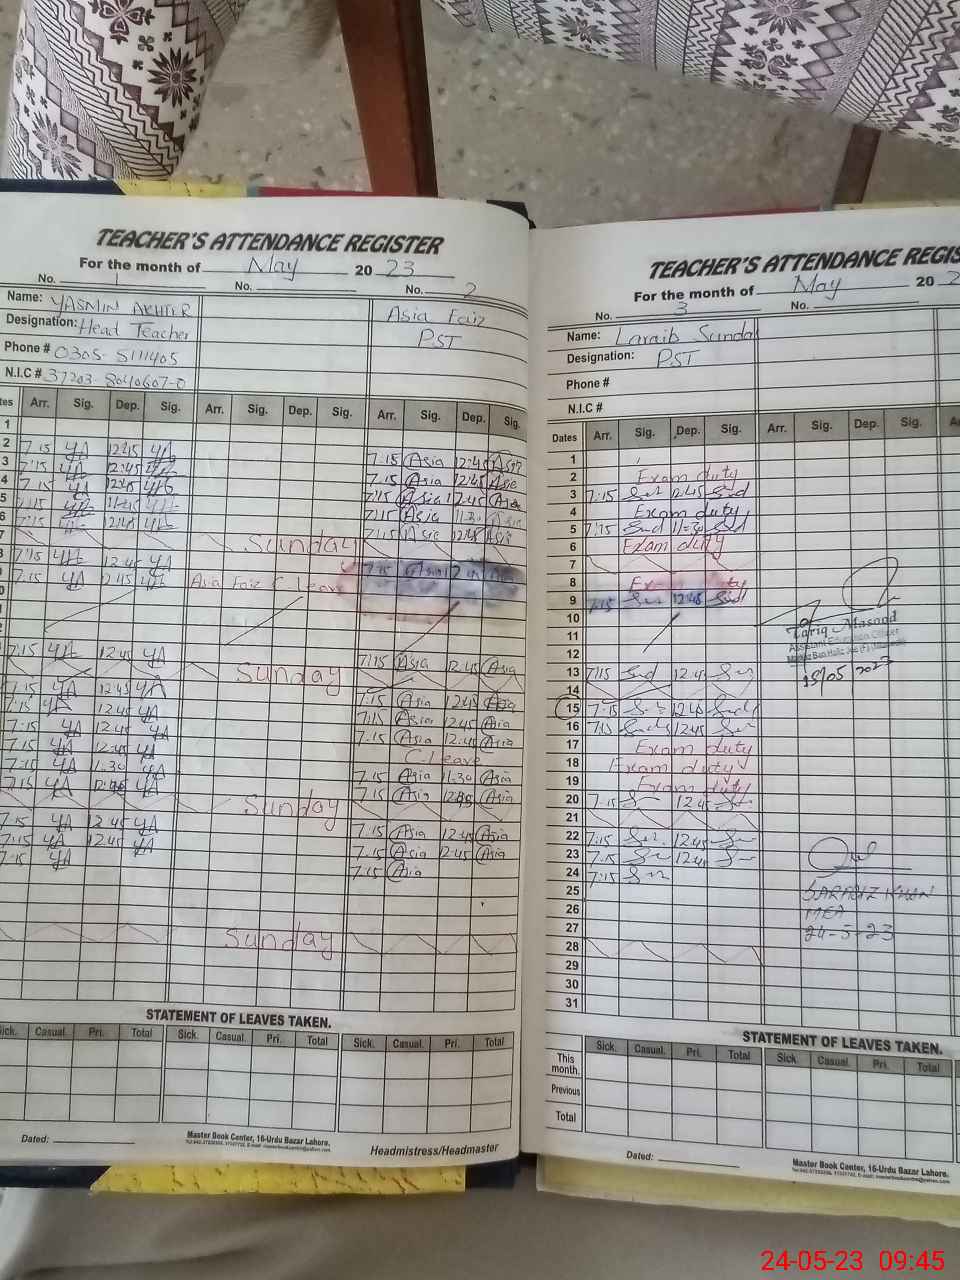 TEACHER'S ATTENDANCE REGISTER
For the month of May 2023
No. 1 No. No. 2
Name: YASMIN AKHTER Asia Faiz
Designation: Head Teacher PST
Phone # 0305-5111405
N.I.C # 37203-8040607-0
Arr. Sig. Dep. Sig. Arr. Sig. Dep. Sig. Arr. Sig. Dep. Sig.
1
2 7:15 YA 12:45 YA 7:15 Asia 12:45 Asia
3 7:15 YA 12:45 7:15 Asia 12:45 Asia
4 7:15 YA 12:45 7:15 Asia 12:45 Asia
5 7:15 11:45 7:15 Asia 11:30 Asia
6 7:15 12:45 7:15 Asia 12:45 Asia
7 Sunday
7:15 12:45 YA 7:15 Asia
7:15 YA Asia Faiz C.leave
7:15 12:45 YA 7:15 Asia 12:45 Asia
Sunday
7:15 YA 12:45 YA 7:15 Asia 12:45 Asia
7:15 YA 12:45 YA 7:15 Asia 12:45 Asia
7:15 YA 12:45 YA 7:15 Asia 12:45 Asia
7:15 YA 12:45 YA C.leave
7:15 YA 11:30 YA 7:15 Asia 11:30 Asia
7:15 YA 12:45 YA 7:15 Asia 12:45 Asia
Sunday
7:15 YA 12:45 YA 7:15 Asia 12:45 Asia
7:15 YA 12:45 YA 7:15 Asia 12:45 Asia
7:15 YA 7:15 Asia
Sunday
STATEMENT OF LEAVES TAKEN.
Sick. Casual. Pri. Total Sick. Casual. Pri. Total Sick. Casual. Pri. Total
Dated:
Master Book Center, 16-Urdu Bazar Lahore.
Headmistress/Headmaster
TEACHER'S ATTENDANCE REGIS
For the month of May 20 2
No. 3 No.
Name: Laraib Sundal
Designation: PST
Phone #
N.I.C #
Dates Arr. Sig. Dep. Sig. Arr. Sig. Dep. Sig.
1
2 Exam duty
3 7:15 12:45
4 Exam duty
5 7:15 11:30
6 Exam duty
7
8 Exam duty
9 7:15 12:45
10
Tariq Masood
11
Assistant Education Officer
12
13 7:15 12:45
15/05 2023
14
15 7:15 12:45
16 7:15 12:45
17 Exam duty
18 Exam duty
19 Exam duty
20 7:15 12:45
21
22 7:15 12:45
23 7:15 12:45
24 7:15
25 SARFRAZ KHAN
26 MEA
27 24-5-23
28
29
30
31
STATEMENT OF LEAVES TAKEN.
Sick. Casual. Pri. Total Sick. Casual. Pri. Total
This month.
Previous
Total
Dated:
Master Book Center, 16-Urdu Bazar Lahore.
24-05-23 09:45